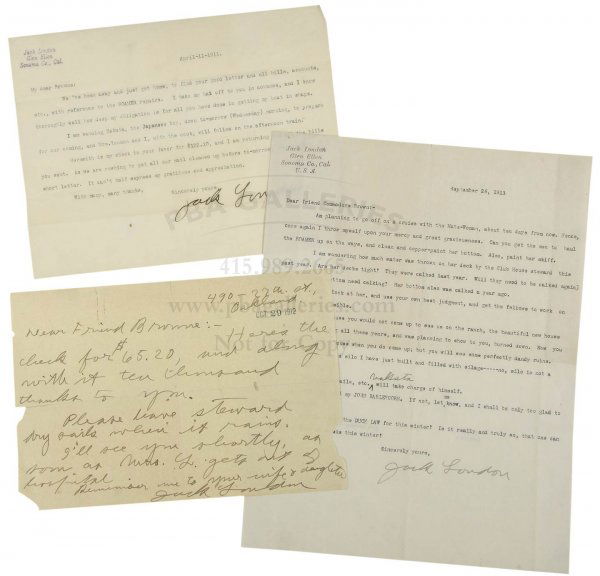 Jack London
Glen Ellen
Sonoma Co., Cal.
April-11-1911.
My dear Browne:
We've been away and just got home, to find your good letter and all bills, accounts,
etc., with reference to the ROAMER repairs. I take my hat off to you in advance, and I know
thoroughly well how deep my obligation is for all you have done in getting my boat in shape.
I am sending Nakata, the Japanese boy, down tomorrow (Wednesday) morning, to prepare
for our coming, and Mrs. London and I, with the cook, will follow on the afternoon train.
Herewith is my check to your favor for $102.10, and I am returning the bills
you sent. As we are rushing to get all our mail cleaned up before to-morrow
short letter. It can't half express my gratitude and appreciation.
With many, many thanks,
Sincerely yours,
Jack London
PBA GALLERIES
415.989.2665
www.pbagalleries.com
Not for Copy
Jack London
Glen Ellen
Sonoma Co., Cal.
U.S.A.
September 26, 1911
Dear friend Commodore Browne:-
Am planning to go off on a cruise with the Mate-Woman, about ten days from now. Hence,
once again I throw myself upon your mercy and great graciousness. Can you get the men to haul
the ROAMER up on the ways, and clean and copper-paint her bottom. Also, paint her skiff.
I am wondering how much water was thrown on her deck by the Club House steward this
last year. Are her decks tight? They were calked last year. Will they need to be calked again?
bottom need calking? Her bottom also was calked a year ago.
look at her, and use your own best judgment, and get the fellows to work on
sible.
use you would not come up to see us on the ranch, the beautiful new house
all these years, and was planning to show to you, burned down. Now you
house when you do come up; but you will see some perfectly dandy ruins.
silo I have just built and filled with silage----no, silo is not a
sails, etc., Nakata will take charge of himself.
my JOHN BARLEYCORN. If not, let me know, and I shall be only too glad to
the DUCK LAW for this winter? Is it really and truly so, that one can
ks this winter?
Sincerely yours,
Jack London
490 - 27th St.,
Oakland
OCT 29 1912
Dear Friend Browne:-
Here's the
check for $65.20, and along
with it ten thousand
thanks to you.
Please have steward
dry sails when it rains.
I'll see you shortly, as
soon as Mrs. L. gets out of
hospital.
Remember me to your wife & daughter
Jack London